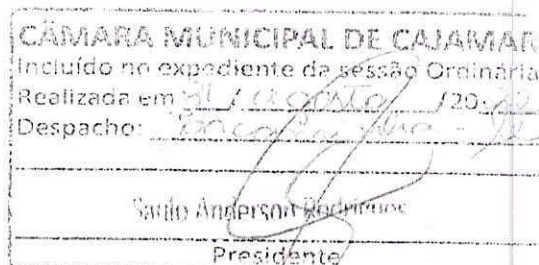 CÂMARA MUNICIPAL DE CAJAMAR
Incluído no expediente da sessão Ordinária
Realizada em / agosto /20
Despacho:
Saulo Anderson Rodrigues
Presidente